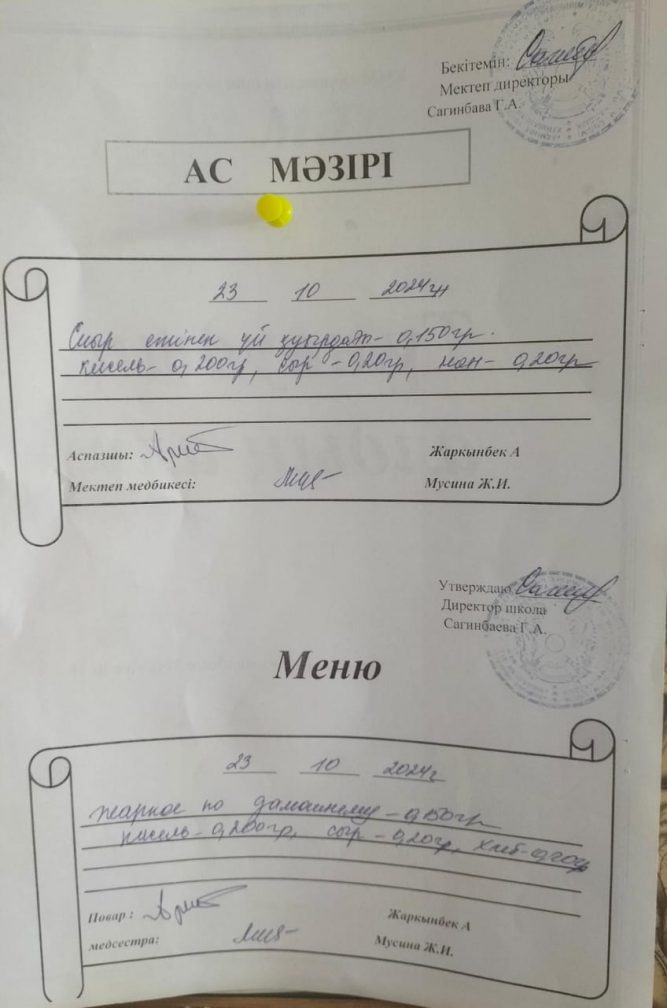 Бекітемін:
Мектеп директоры
Сагинбава Г.А.
АС МӘЗІРІ
23 10 2024ж
Сиыр етінен үй қуырдағы - 0,150гр.
кисель - 0,200гр, сыр - 0,20гр, нан - 0,20гр
Аспазшы: Жаркынбек А
Мектеп медбикесі: Мусина Ж.И.
Утверждаю
Директор школа
Сагинбаева Г.А.
Меню
23 10 2024г
жаркое по дамашнему - 0,150гр
кисель - 0,200гр, сыр - 0,20гр, хлеб - 0,20гр
Повар : Жаркынбек А
медсестра: Мусина Ж.И.